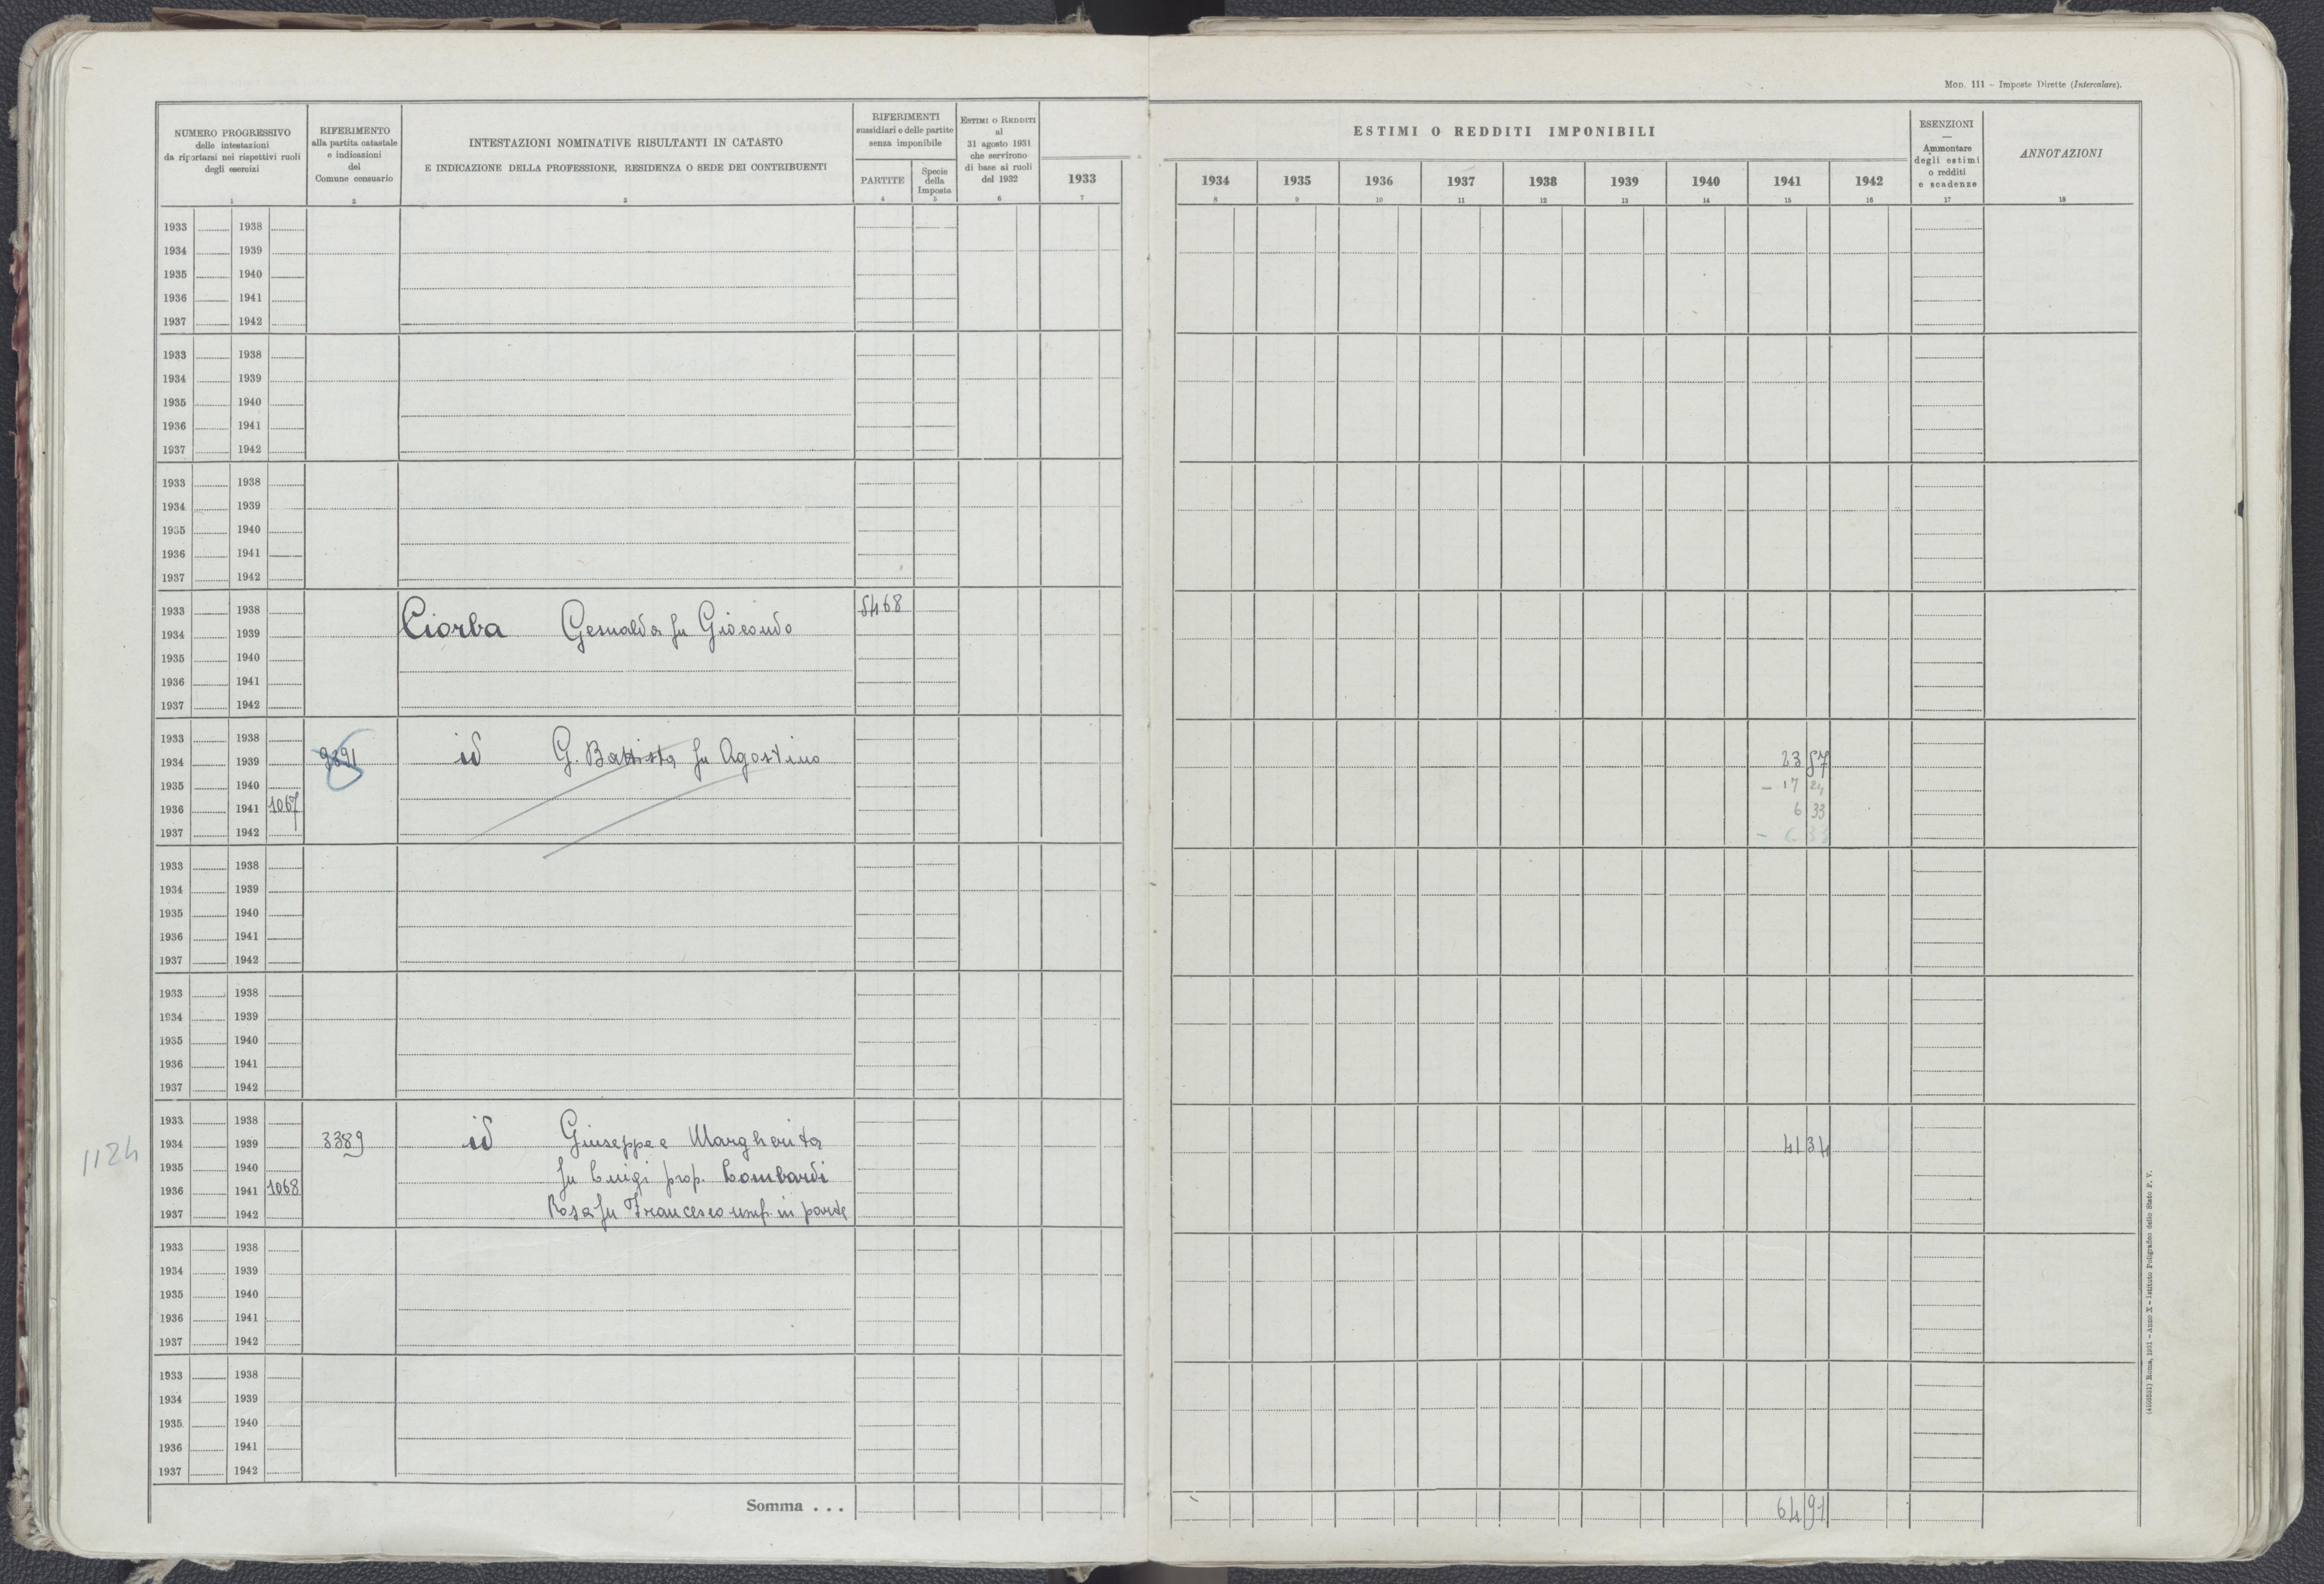 MOD. 111 – Imposte Dirette (Intercalare).
NUMERO PROGRESSIVO
delle intestazioni
da riportarsi nei rispettivi ruoli
degli esercizi
1
RIFERIMENTO
alla partita catastale
e indicazioni
del
Comune censuario
2
INTESTAZIONI NOMINATIVE RISULTANTI IN CATASTO
E INDICAZIONE DELLA PROFESSIONE, RESIDENZA O SEDE DEI CONTRIBUENTI
3
RIFERIMENTI
sussidiari e delle partite
senza imponibile
PARTITE
4
Specie
della
Imposta
5
ESTIMI O REDDITI
al
31 agosto 1931
che servirono
di base ai ruoli
del 1932
6
1933
7
ESTIMI O REDDITI IMPONIBILI
1934 1935 1936 1937 1938 1939 1940 1941 1942
8 9 10 11 12 13 14 15 16
ESENZIONI
—
Ammontare
degli estimi
o redditi
e scadenze
17
ANNOTAZIONI
18
1933 1938
1934 1939
1935 1940
1936 1941
1937 1942
1933 1938
1934 1939
1935 1940
1936 1941
1937 1942
1933 1938
1934 1939
1935 1940
1936 1941
1937 1942
1933 1938 5468
1934 1939 Ciorba Gesualda fu Giocondo
1935 1940
1936 1941
1937 1942
1933 1938
1934 1939 id G. Battista fu Agostino 23 57
1935 1940 – 17 24
1936 1941 1067 6 33
1937 1942 – 6 33
1933 1938
1934 1939
1935 1940
1936 1941
1937 1942
1933 1938
1934 1939
1935 1940
1936 1941
1937 1942
1933 1938
1934 1939 3389 id Giuseppe e Margherita 41 34
1124 1935 1940 fu Luigi prop. Lombardi
1936 1941 1068
1937 1942 Rosa fu Francesco usuf. in parte
1933 1938
1934 1939
1935 1940
1936 1941
1937 1942
1933 1938
1934 1939
1935 1940
1936 1941
1937 1942
Somma . . . 64 91
(4105531) Roma, 1931 – Anno X – Istituto Poligrafico dello Stato P. V.